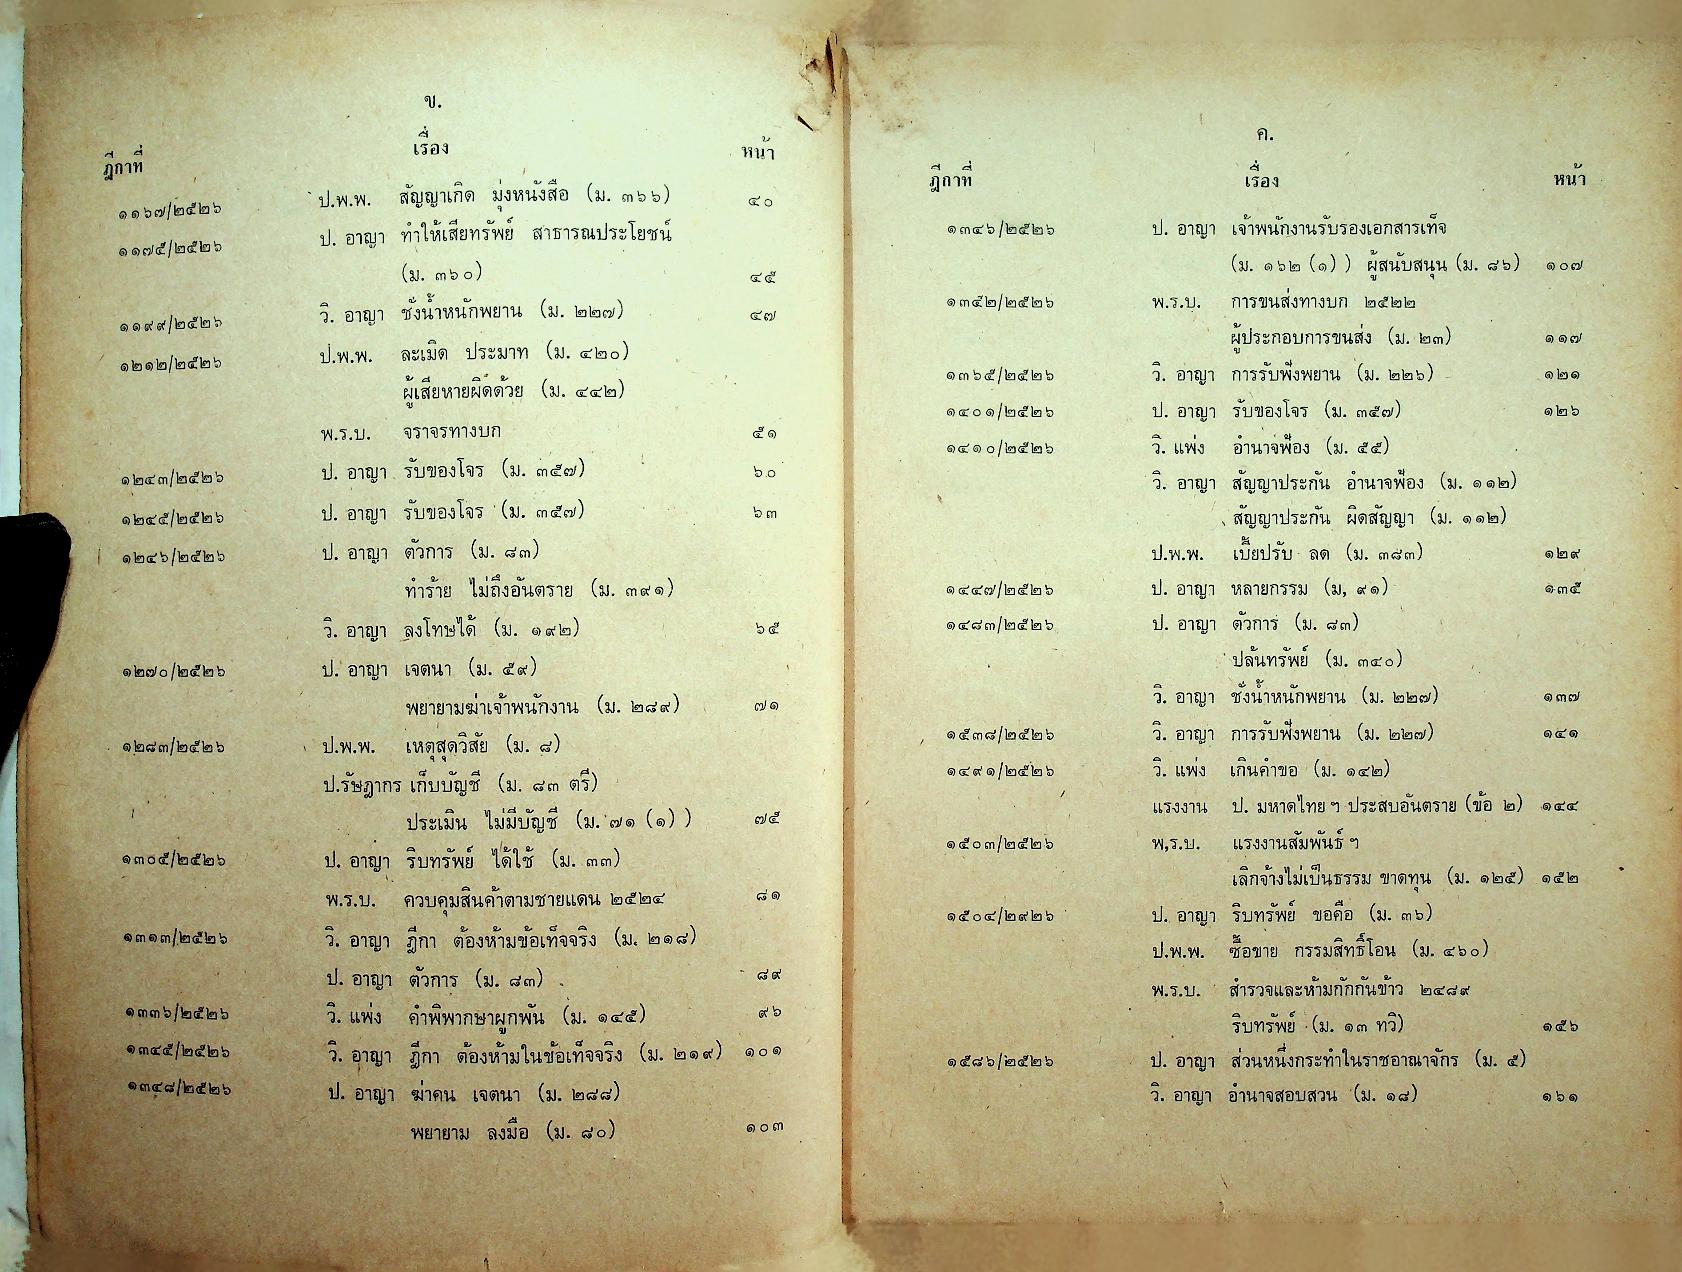 ข.
ฎีกาที่ เรื่อง หน้า
๑๑๖๗/๒๕๒๖ ป.พ.พ. สัญญาเกิด มุ่งหนังสือ (ม. ๓๖๖) ๔๐
๑๑๗๕/๒๕๒๖ ป. อาญา ทำให้เสียทรัพย์ สาธารณประโยชน์
(ม. ๓๖๐) ๔๕
๑๑๙๙/๒๕๒๖ วิ. อาญา ชั่งน้ำหนักพยาน (ม. ๒๒๗) ๔๗
๑๒๑๒/๒๕๒๖ ป.พ.พ. ละเมิด ประมาท (ม. ๔๒๐)
ผู้เสียหายผิดด้วย (ม. ๔๔๒)
พ.ร.บ. จราจรทางบก ๕๑
๑๒๔๓/๒๕๒๖ ป. อาญา รับของโจร (ม. ๓๕๗) ๖๐
๑๒๔๕/๒๕๒๖ ป. อาญา รับของโจร (ม. ๓๕๗) ๖๓
๑๒๔๖/๒๕๒๖ ป. อาญา ตัวการ (ม. ๘๓)
ทำร้าย ไม่ถึงอันตราย (ม. ๓๙๑)
วิ. อาญา ลงโทษได้ (ม. ๑๙๒) ๖๕
๑๒๗๐/๒๕๒๖ ป. อาญา เจตนา (ม. ๕๙)
พยายามฆ่าเจ้าพนักงาน (ม. ๒๘๙) ๗๑
๑๒๘๓/๒๕๒๖ ป.พ.พ. เหตุสุดวิสัย (ม. ๘)
ป.รัษฎากร เก็บบัญชี (ม. ๘๓ ตรี)
ประเมิน ไม่มีบัญชี (ม. ๗๑ (๑) ) ๗๕
๑๓๐๕/๒๕๒๖ ป. อาญา ริบทรัพย์ ได้ใช้ (ม. ๓๓)
พ.ร.บ. ควบคุมสินค้าตามชายแดน ๒๕๒๔ ๘๑
๑๓๑๓/๒๕๒๖ วิ. อาญา ฎีกา ต้องห้ามข้อเท็จจริง (ม. ๒๑๘)
ป. อาญา ตัวการ (ม. ๘๓) ๘๙
๑๓๓๖/๒๕๒๖ วิ. แพ่ง คำพิพากษาผูกพัน (ม. ๑๔๕) ๙๖
๑๓๔๕/๒๕๒๖ วิ. อาญา ฎีกา ต้องห้ามในข้อเท็จจริง (ม. ๒๑๙) ๑๐๑
๑๓๔๘/๒๕๒๖ ป. อาญา ฆ่าคน เจตนา (ม. ๒๘๘)
พยายาม ลงมือ (ม. ๘๐) ๑๐๓
ค.
ฎีกาที่ เรื่อง หน้า
๑๓๔๖/๒๕๒๖ ป. อาญา เจ้าพนักงานรับรองเอกสารเท็จ
(ม. ๑๖๒ (๑) ) ผู้สนับสนุน (ม. ๘๖) ๑๐๗
๑๓๕๒/๒๕๒๖ พ.ร.บ. การขนส่งทางบก ๒๕๒๒
ผู้ประกอบการขนส่ง (ม. ๒๓) ๑๑๗
๑๓๖๕/๒๕๒๖ วิ. อาญา การรับฟังพยาน (ม. ๒๒๖) ๑๒๑
๑๔๐๑/๒๕๒๖ ป. อาญา รับของโจร (ม. ๓๕๗) ๑๒๖
๑๔๑๐/๒๕๒๖ วิ. แพ่ง อำนาจฟ้อง (ม. ๕๕)
วิ. อาญา สัญญาประกัน อำนาจฟ้อง (ม. ๑๑๒)
สัญญาประกัน ผิดสัญญา (ม. ๑๑๒)
ป.พ.พ. เบี้ยปรับ ลด (ม. ๓๘๓) ๑๒๙
๑๔๔๗/๒๕๒๖ ป. อาญา หลายกรรม (ม, ๙๑) ๑๓๕
๑๔๘๓/๒๕๒๖ ป. อาญา ตัวการ (ม. ๘๓)
ปล้นทรัพย์ (ม. ๓๔๐)
วิ. อาญา ชั่งน้ำหนักพยาน (ม. ๒๒๗) ๑๓๗
๑๕๓๘/๒๕๒๖ วิ. อาญา การรับฟังพยาน (ม. ๒๒๗) ๑๔๑
๑๔๙๑/๒๕๒๖ วิ. แพ่ง เกินคำขอ (ม. ๑๔๒)
แรงงาน ป. มหาดไทย ฯ ประสบอันตราย (ข้อ ๒) ๑๔๔
๑๕๐๓/๒๕๒๖ พ,ร.บ. แรงงานสัมพันธ์ ฯ
เลิกจ้างไม่เป็นธรรม ขาดทุน (ม. ๑๒๕) ๑๕๒
๑๕๐๔/๒๙๒๖ ป. อาญา ริบทรัพย์ ขอคือ (ม. ๓๖)
ป.พ.พ. ซื้อขาย กรรมสิทธิ์โอน (ม. ๔๖๐)
พ.ร.บ. สำรวจและห้ามกักกันข้าว ๒๔๘๙
ริบทรัพย์ (ม. ๑๓ ทวิ) ๑๕๖
๑๕๘๖/๒๕๒๖ ป. อาญา ส่วนหนึ่งกระทำในราชอาณาจักร (ม. ๕)
วิ. อาญา อำนาจสอบสวน (ม. ๑๘) ๑๖๑